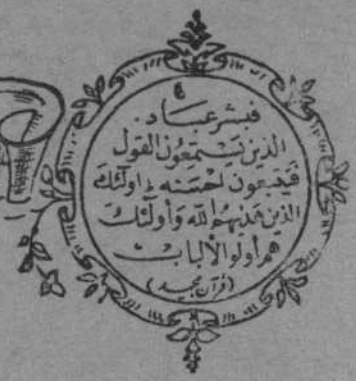 فبشر عباد
الذین یستمعون القول
فیتبعون احسنه اولئک
الذین هدیهم الله و أولئک
هم أولو الألباب
(قرآن مجید)